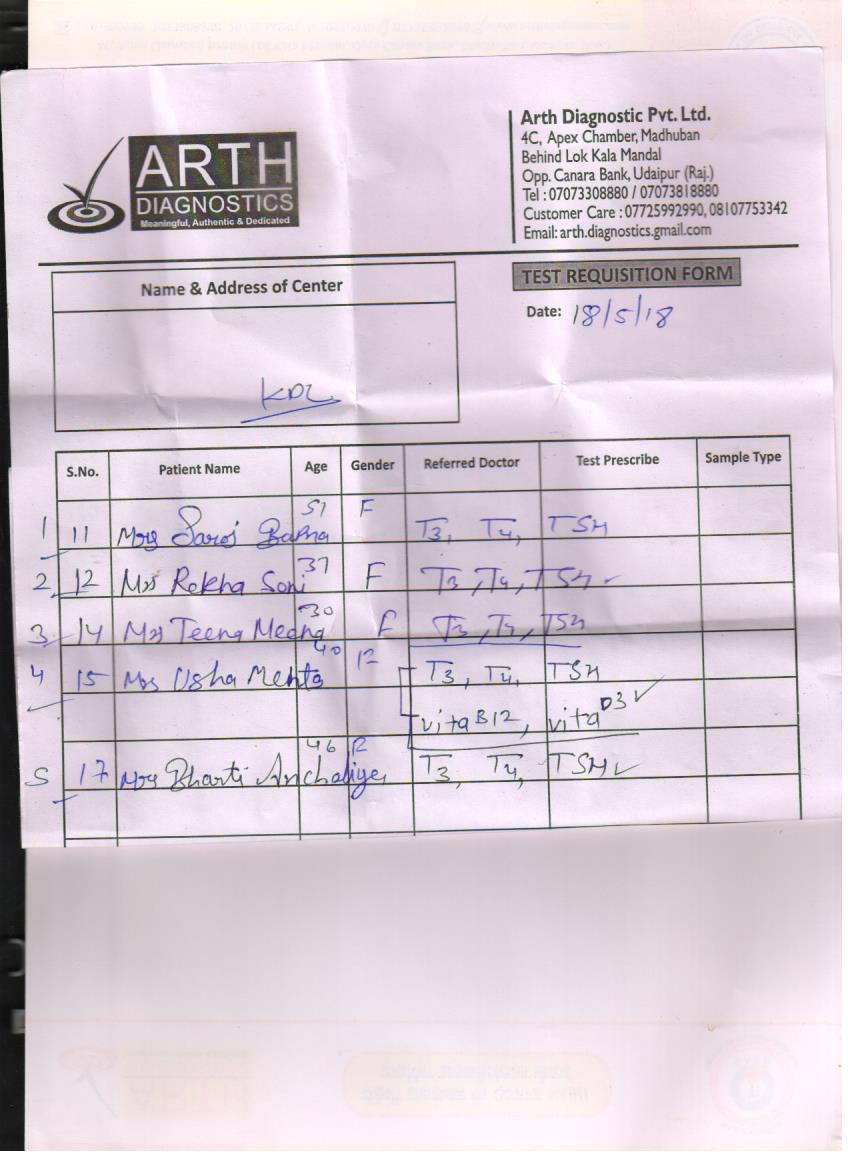 ARTH
DIAGNOSTICS
Meaningful, Authentic & Dedicated
Arth Diagnostic Pvt. Ltd.
4C, Apex Chamber, Madhuban
Behind Lok Kala Mandal
Opp. Canara Bank, Udaipur (Raj.)
Tel : 07073308880 / 07073818880
Customer Care : 07725992990, 08107753342
Email: arth.diagnostics.gmail.com
Name & Address of Center
TEST REQUISITION FORM
Date: 18/5/18
KDL
S.No. Patient Name Age Gender Referred Doctor Test Prescribe Sample Type
1 11 Mrs Saroj 51 F T3, T4, TSH
2 12 Mrs Rekha Soni 37 F T3, T4, TSH
3 14 Mrs Teena Meena 30 F T3, T4, TSH
4 15 Mrs Usha Mehta 40 F T3, T4, TSH
vita B12, vita D3
5 17 Mrs Bharti Anchaliya 46 F T3, T4, TSH